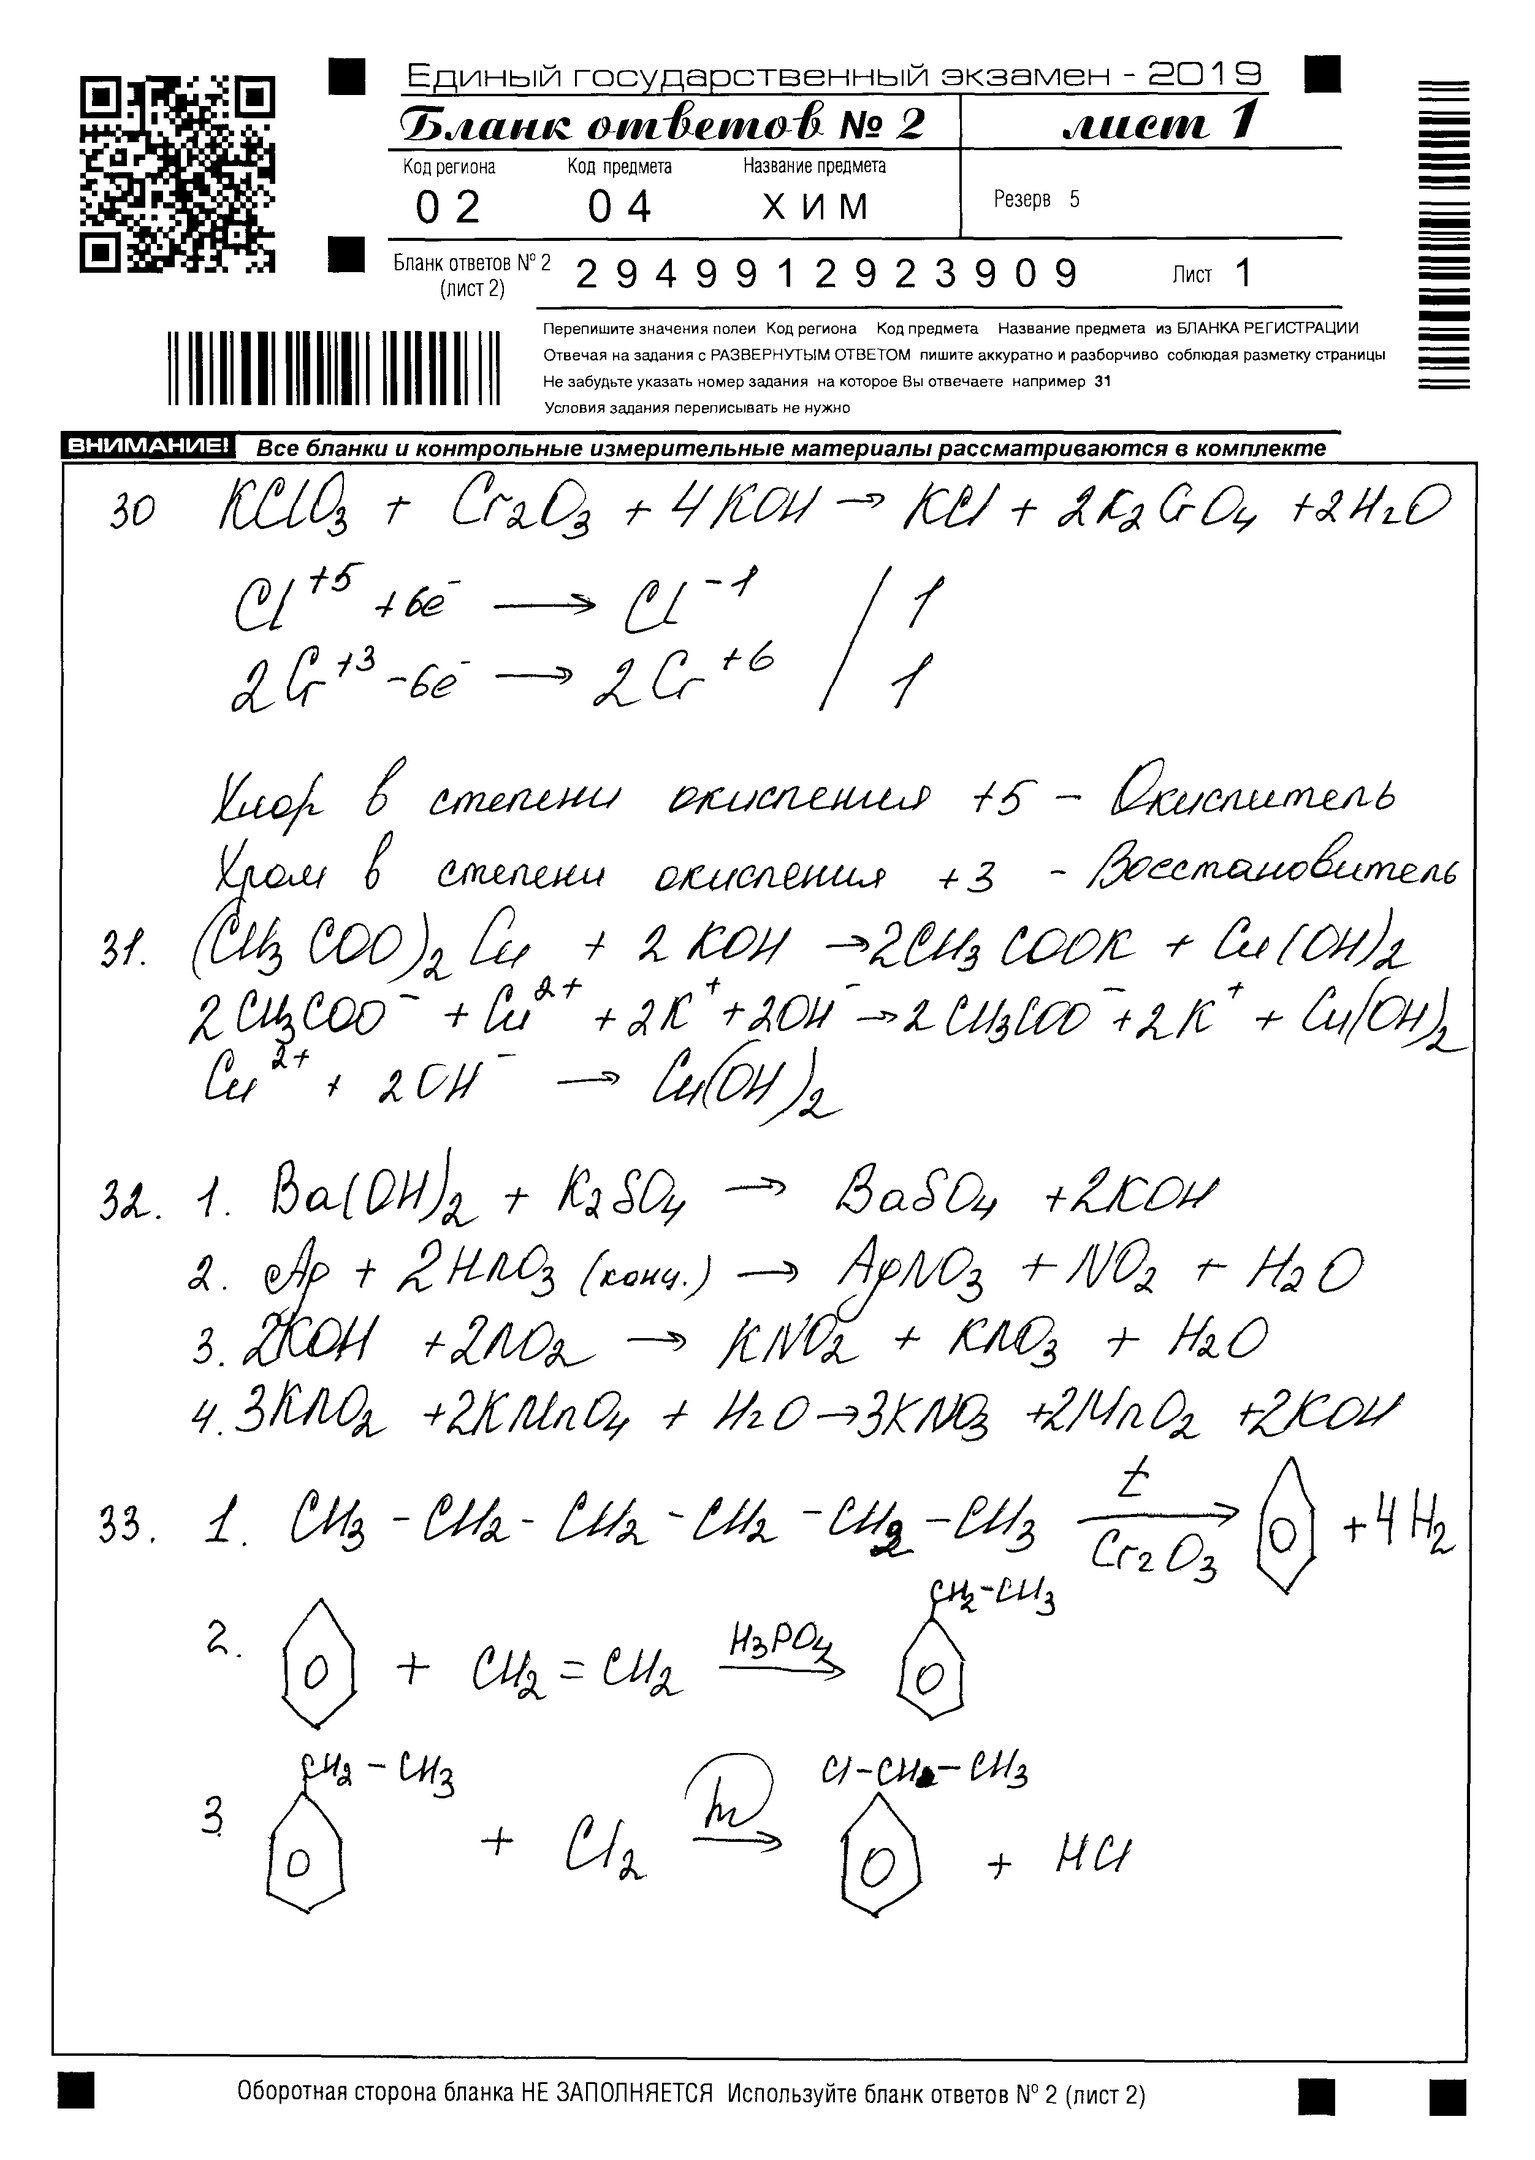 Единый государственный экзамен - 2019
Бланк ответов № 2 лист 1
Код региона Код предмета Название предмета
02 04 ХИМ Резерв 5
Бланк ответов № 2 (лист 2) 2949912923909 Лист 1
Перепишите значения полеи Код региона Код предмета Название предмета из БЛАНКА РЕГИСТРАЦИИ
Отвечая на задания с РАЗВЕРНУТЫМ ОТВЕТОМ пишите аккуратно и разборчиво соблюдая разметку страницы
Не забудьте указать номер задания на которое Вы отвечаете например 31
Условия задания переписывать не нужно
ВНИМАНИЕ! Все бланки и контрольные измерительные материалы рассматриваются в комплекте
30 KClO₃ + Cr₂O₃ + 4KOH → KCl + 2K₂CrO₄ + 2H₂O
Cl⁺⁵ + 6e⁻ → Cl⁻¹ / 1
2Cr⁺³ - 6e⁻ → 2Cr⁺⁶ / 1
Хлор в степени окисления +5 - Окислитель
Хром в степени окисления +3 - Восстановитель
31. (CH₃COO)₂Cu + 2KOH → 2CH₃COOK + Cu(OH)₂
2CH₃COO⁻ + Cu²⁺ + 2K⁺ + 2OH⁻ → 2CH₃COO⁻ + 2K⁺ + Cu(OH)₂
Cu²⁺ + 2OH⁻ → Cu(OH)₂
32. 1. Ba(OH)₂ + K₂SO₄ → BaSO₄ + 2KOH
2. Ag + 2HNO₃ (конц.) → AgNO₃ + NO₂ + H₂O
3. 2KOH + 2NO₂ → KNO₂ + KNO₃ + H₂O
4. 3KNO₂ + 2KMnO₄ + H₂O → 3KNO₃ + 2MnO₂ + 2KOH
33. 1. CH₃ - CH₂ - CH₂ - CH₂ - CH₂ - CH₃ t → Cr₂O₃ + 4H₂
CH₂-CH₃
2. + CH₂ = CH₂ H₃PO₄ →
CH₂ - CH₃ Cl-CH₂-CH₃
3 + Cl₂ hν → + HCl
Оборотная сторона бланка НЕ ЗАПОЛНЯЕТСЯ Используйте бланк ответов № 2 (лист 2)